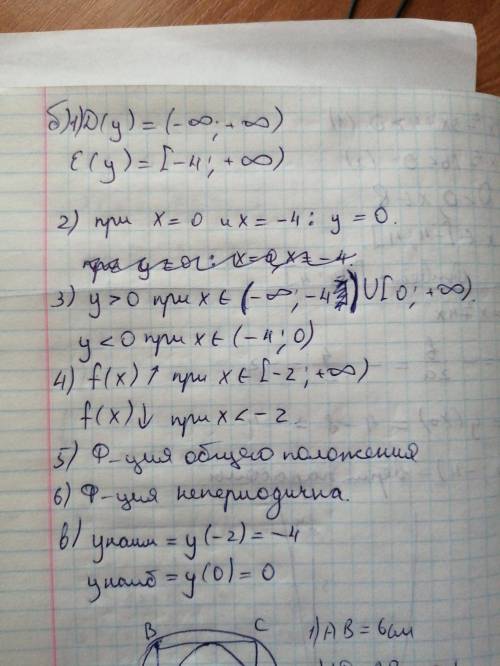 б) 1) D(y) = (-∞; +∞)
E(y) = [-4; +∞)
2) при x = 0 и x = -4: y = 0.
при y = 0: x = 0, x = -4
3) y > 0 при x ∈ (-∞; -4) ∪ [0; +∞).
y < 0 при x ∈ (-4; 0)
4) f(x) ↑ при x ∈ [-2; +∞)
f(x) ↓ при x < -2
5) Ф-ция общего положения
6) Ф-ция непериодична.
в) yнаим = y(-2) = -4
yнаиб = y(0) = 0
B C 1) AB = 6см